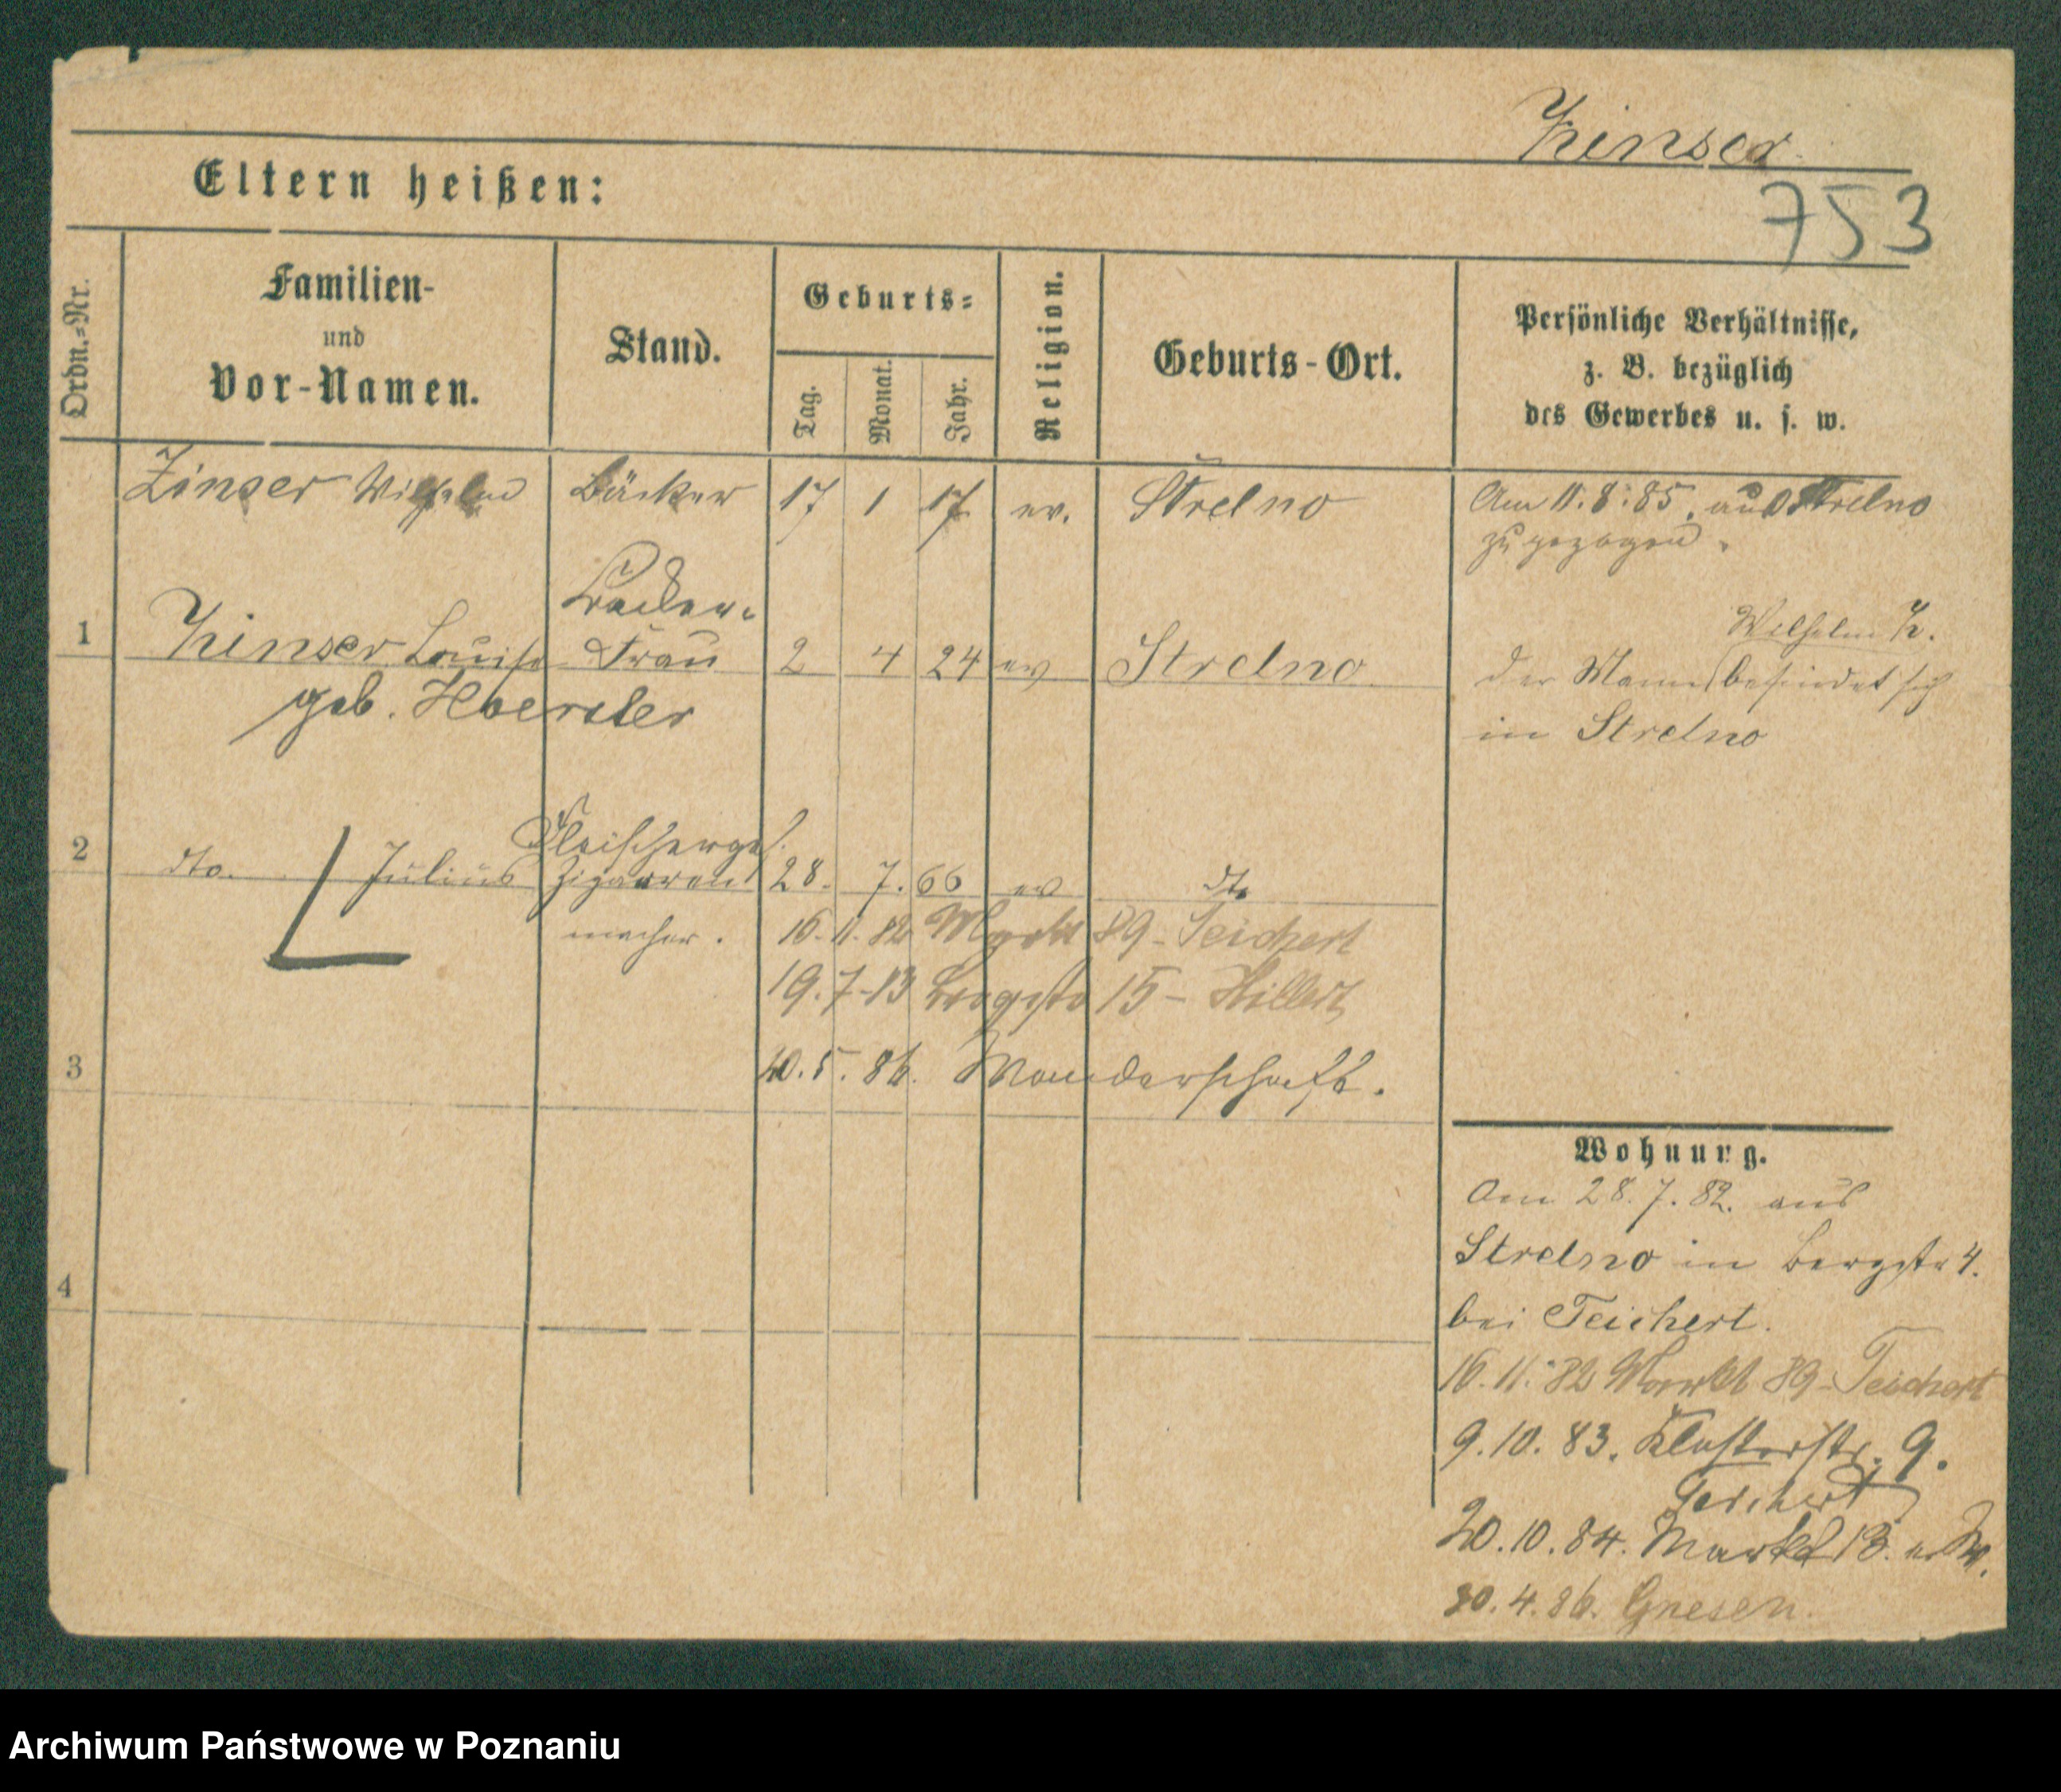 Zinser
753
Eltern heißen:
Ordn.-Nr.
Familien-
und
Vor-Namen.
Stand.
Geburts-
Tag.
Monat.
Jahr.
Religion.
Geburts-Ort.
Persönliche Verhältnisse,
z. B. bezüglich
des Gewerbes u. s. w.
Zinser Wilhelm Bäcker 17 1 17 ev. Strelno Am 11.8.85. aus Strelno
zugezogen.
1 Zinser Louise Frau 2 4 24 ev Strelno
geb.
Wilhelm Z.
der Mann befindet sich
in Strelno
Fleischerges.
2 dto. Julius Zigarren 28. 7. 66 ev dto
macher.
16.11.82 Markt 89 - Teichert
19.7.83 Bergstr 15 - Hillert
3
20.5.86. Wanderschaft.
4
Wohnung.
Am 28.7.82. aus
Strelno in Bergstr 4.
bei Teichert.
16.11.82 Markt 89 - Teichert
9.10.83. Klosterstr. 9.
Teichert
20.10.84. Markt 13.
30.4.86. Gnesen.
Archiwum Państwowe w Poznaniu